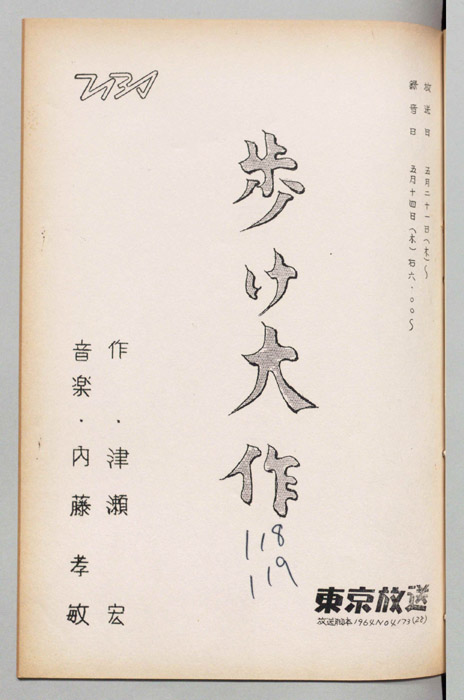 放送日 五月二十一日(木)〜
録音日 五月十四日(木) 后六・〇〇〜
TBS
歩け大作
118
119
作・津瀬 宏
音楽・内藤孝敏
東京放送
放送脚本1964.NO4173(28)